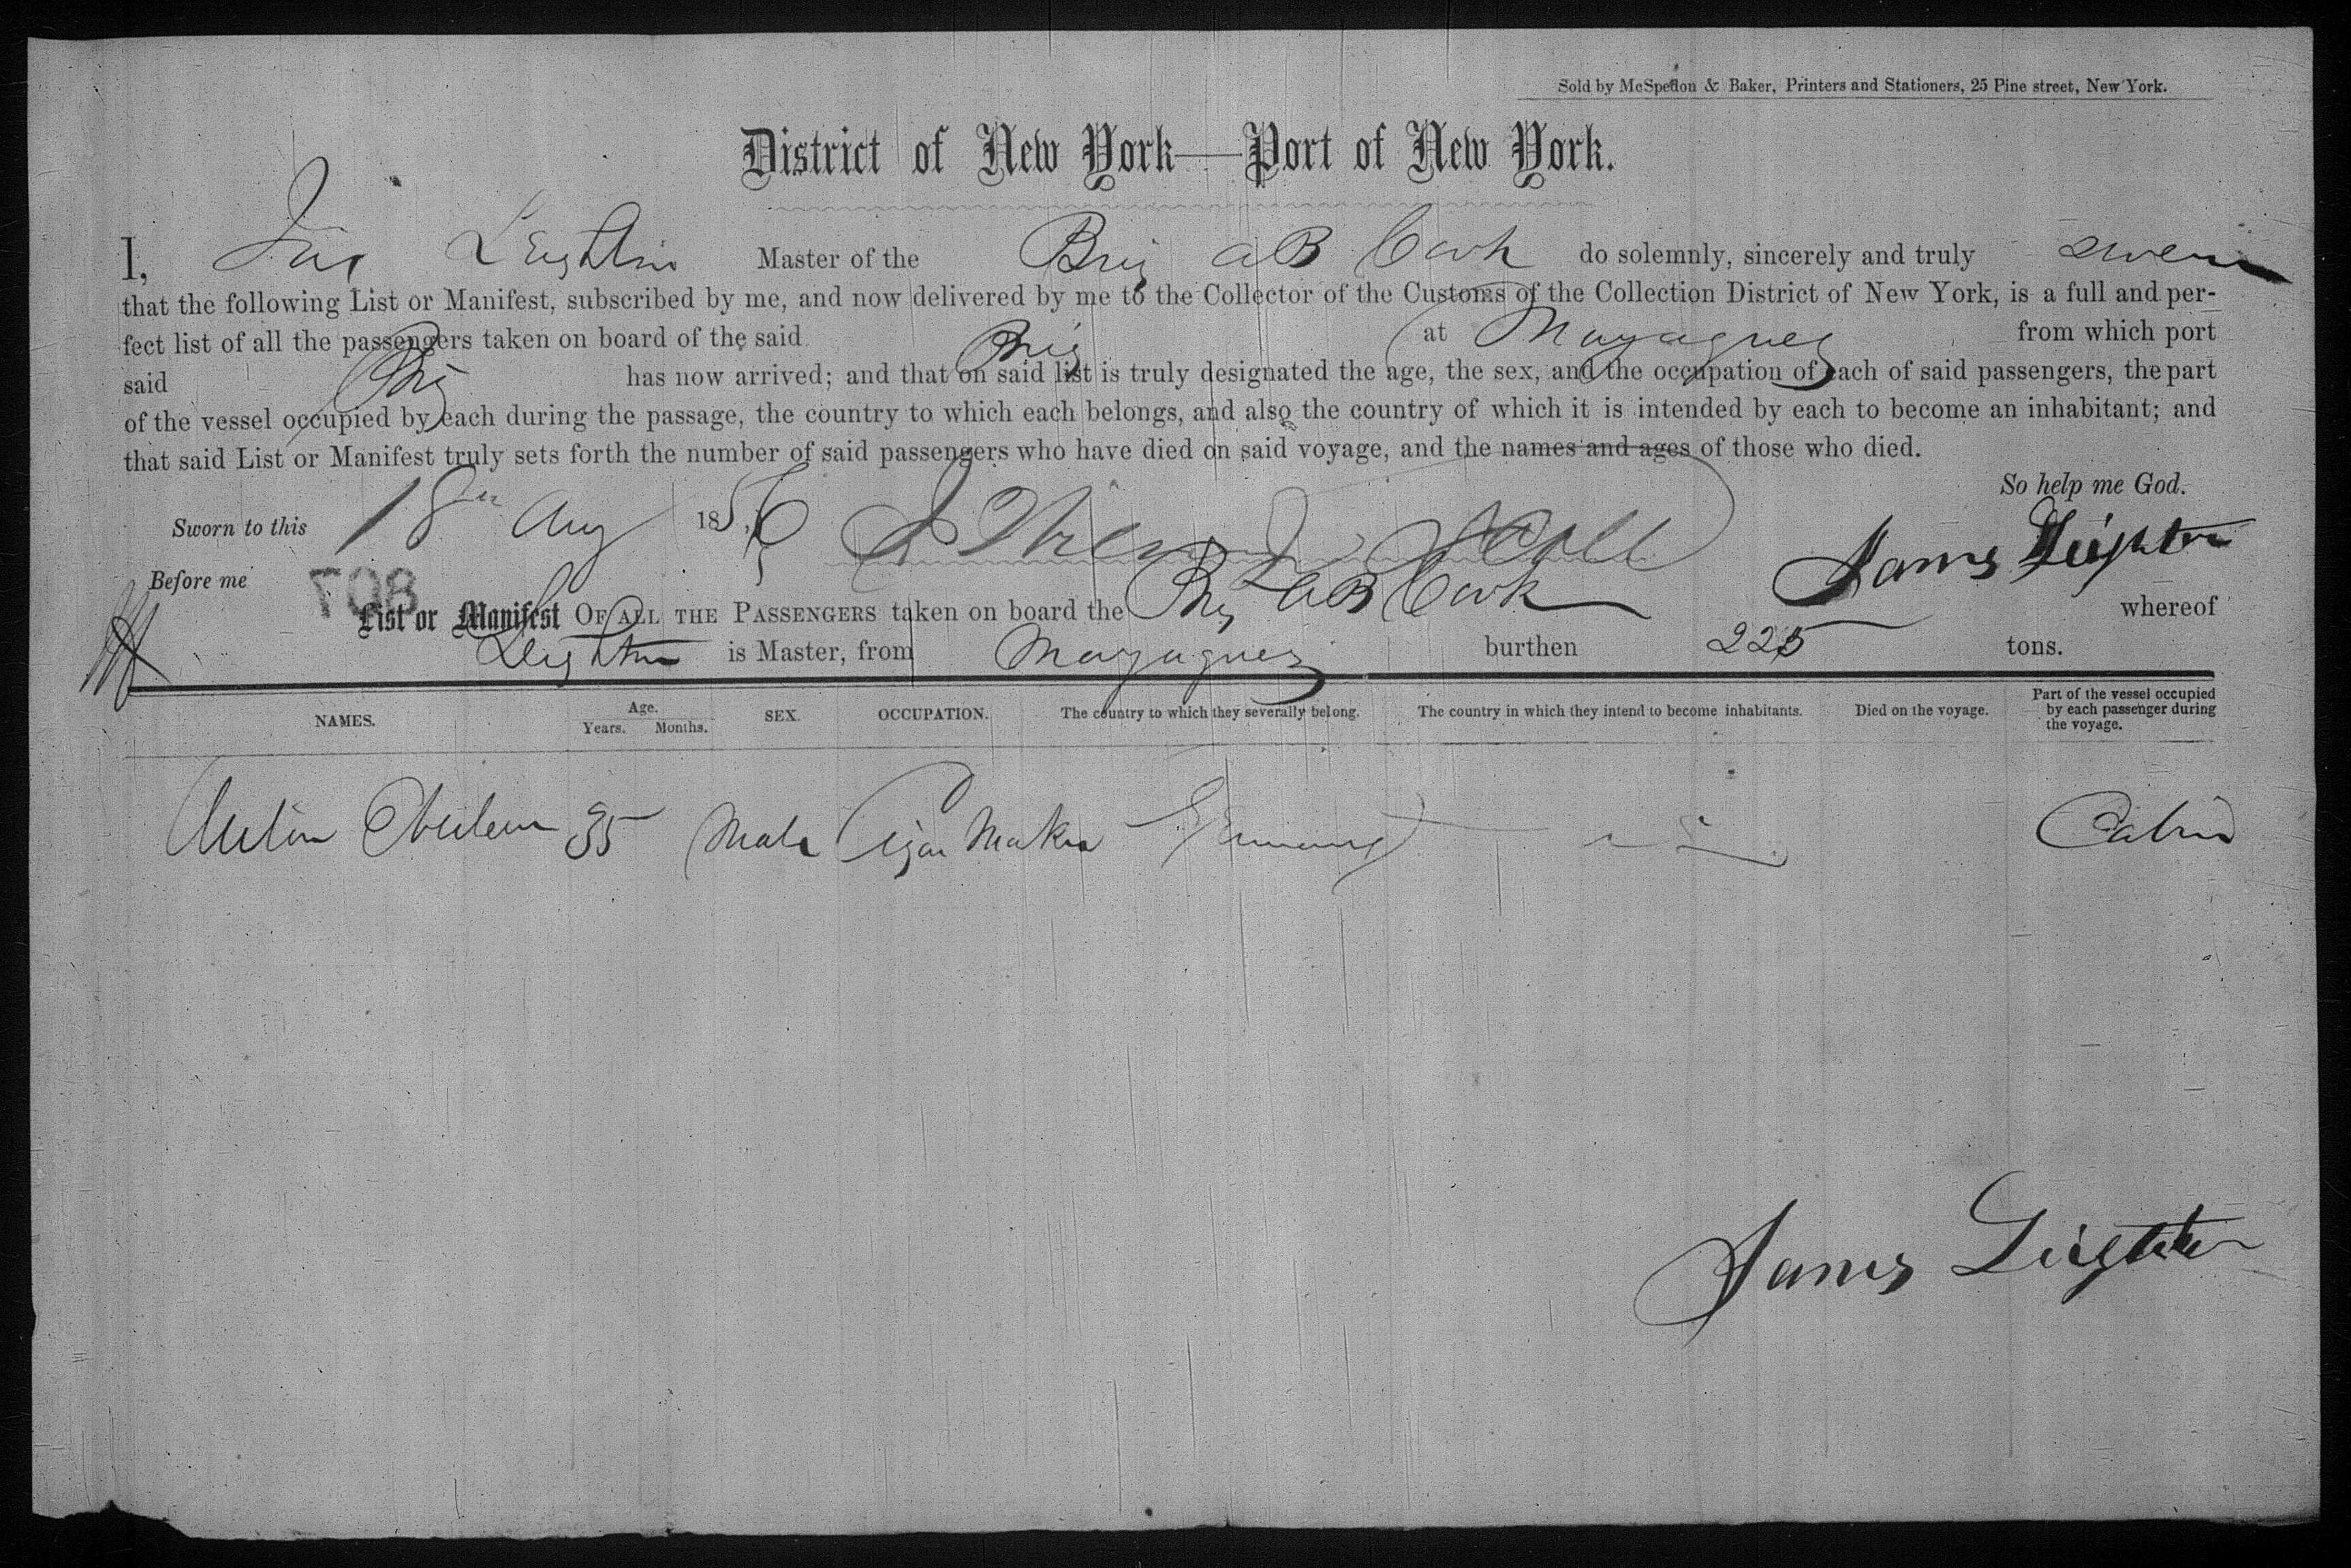 Sold by McSpedon & Baker, Printers and Stationers, 25 Pine street, New York.
District of New York—Port of New York.
I, Jas Leighton Master of the Brig AB Cook do solemnly, sincerely and truly swear
that the following List or Manifest, subscribed by me, and now delivered by me to the Collector of the Customs of the Collection District of New York, is a full and per-
fect list of all the passengers taken on board of the said Brig at Mayaguez from which port
said Brig has now arrived; and that on said list is truly designated the age, the sex, and the occupation of each of said passengers, the part
of the vessel occupied by each during the passage, the country to which each belongs, and also the country of which it is intended by each to become an inhabitant; and
that said List or Manifest truly sets forth the number of said passengers who have died on said voyage, and the names and ages of those who died.
So help me God.
Sworn to this 18th Aug 1856
James Leighton
Before me
708
List or Manifest OF ALL THE PASSENGERS taken on board the Brig AB Cook whereof
Leighton is Master, from Mayaguez burthen 225 tons.
NAMES. Age. Years. Months. SEX. OCCUPATION. The country to which they severally belong. The country in which they intend to become inhabitants. Died on the voyage. Part of the vessel occupied by each passenger during the voyage.
35 Male Cigar Maker Germany Cabin
James Leighton